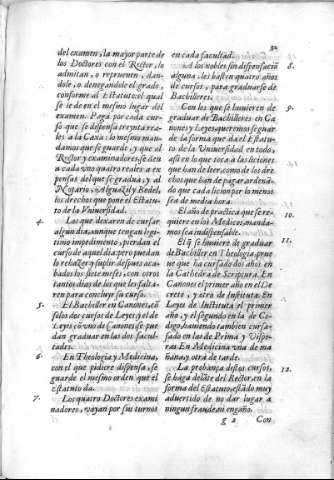 del examen, la mayor parte de
los Doctores con el Rector, lo
admitan, o reprueuen, dan-
dole, o denegandole el grado,
conforme al Estatuto: el qual
se le de en el mesmo lugar del
examen. Paga por cada cur-
so que se dispensa treynta rea-
les a la Caxa: lo mesmo man-
damos que se guarde, y que al
Rector, y examinadores se den
a cada vno quatro reales a ex-
pensas del que se gradua, y al
Notario, Alguazil y Bedel,
los derechos que pone el Estatu-
to de la Vniuersidad.
4. Los que dexaren de cursar
algun dia, aunque tengan legi-
timo impedimento, pierdan el
curso de aquel dia, pero puedan
lo rehazer, y suplir despues aca-
bados los siete meses, con otros
tantos dias de los que les falta-
ren para concluyr su curso.
5. El Bachiller en Canones, cõ
solos dos cursos de Leyes, y el de
Leyes, cõ vno de Canones se pue
dan graduar en las dos facul-
tades.
6. En Theologia y Medicina,
con el que pidiere dispensa, se
guarde el mesmo orden que el
Estatuto da.
7. Los quatro Doctores exami
nadores, vayan por sus turnos
en cada facultad.
A los nobles sin dispensaciõ 8.
alguna, les basten quatro años
de cursos, para graduarse de
Bachilleres.
Con los que se huuieren de 9.
graduar de Bachilleres en Ca
nones y Leyes, queremos se guar
de la forma que da el Estatu-
to de la Vniuersidad en todo,
assi en lo que toca a las liciones
que han de leer, como de los dere
chos que han de pagar, ordenã-
do que cada licion por lo menos
sea de media hora.
El año de practica que se re- 10.
quiere en los Medicos, manda-
mos sea indispensable.
El q̃ se huuiere de graduar 11.
de Bachiller en Theologia, prue
ue que ha cursado dos años en
la Cathedra de Scriptura. En
Canones el primer año en el De
creto, y otro de Instituta. En
Leyes de Instituta el primer
año, y el segundo en la de Co-
digo, hauiendo tambien cursa-
do en las de Prima y Vispe-
ras. En Medicina vna de ma
ñana, y otra de tarde.
La probança destos cursos, 12.
se haga delãte del Rector, en la
forma del Estatuto, estãdo muy
aduertido de no dar lugar a
ningun fraude, ni engaño.
g 2 Con